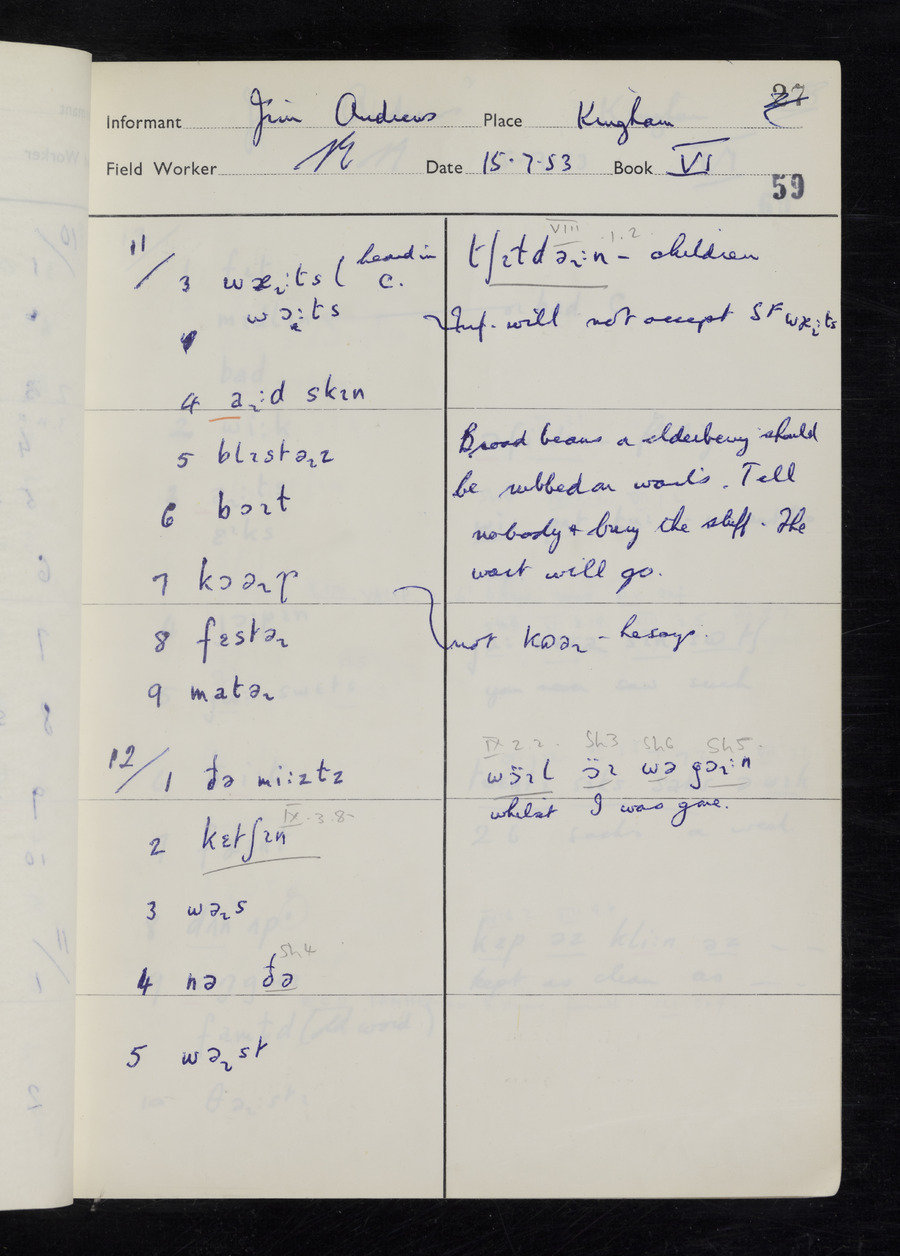 27
Informant Jim Andrews Place Kingham
Field Worker Date 15.7.53 Book VI
59
11/ 3 wɒ̨ːts ( heard in C.
wɔ̣ːts
4 aʴːd skɪn
5 blɪstəʴz
6 bɔɪt
7 kɔəʴp
8 fɛstəʴ
9 matəʴ
12/ 1 ðə miːzɫz
2 kɛtʃɪn IX.3.8
3 wəʴs
4 nə ðə Sh4
5 wəʴst
VIII .1.2
– children
Inf. will not accept SF
Broad beans a elderberry should
be rubbed on warts. Tell
nobody & bury the stuff. The
wart will go.
not kɒəʴ – he says.
IX 2 2. Sh3 Sh6 Sh5.
wə gəʴːn
whilst I was gone.